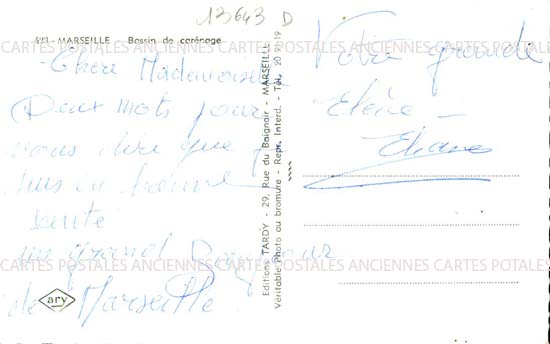 13643 D
523 - MARSEILLE Bassin de carénage
CARTES POSTALES ANCIENNES CARTES POSTALES ANCIENNES CARTES POSTALES
Chère Mademoiselle
Deux mots pour
vous dire que je
suis en bonne
santé
un grand Bonjour
de Marseille
Votre grande
Elève
Eliane
Editions TARDY - 29, Rue du Baignoir - MARSEILLE
Véritable Photo au bromure - Repr. Interd. - Tél. 20 91-19
CARTES POSTALES ANCIENNES CARTES POSTALES ANCIENNES CARTES POSTALES
ary